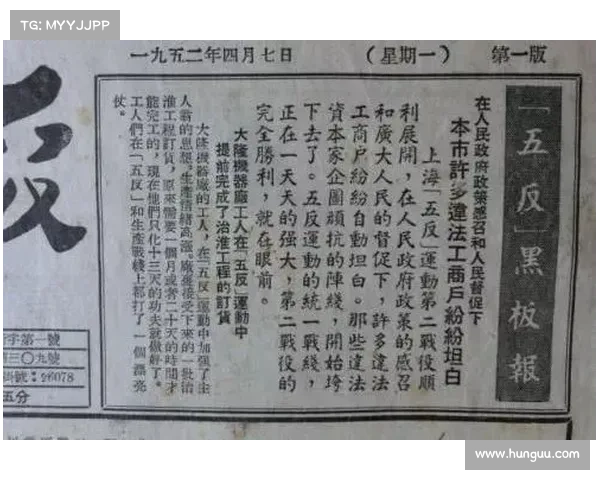 TG: MYYJJPP
一九五二年四月七日
（星期一）
第一版
「五反」黑板報
在人民政府政策感召和人民督促下
本市許多違法工商戶紛紛坦白
上海「五反」運動第二戰役順
利展開，在人民政府政策的感召
和廣大人民的督促下，許多違法
工商戶紛紛自動坦白。那些違法
資本家企圖頑抗的陣綫，開始垮
下去了。五反運動的統一戰綫，
正在一天天的强大，第二戰役的
完全勝利，就在眼前。
大隆機器廠工人在「五反」運動中
提前完成了治淮工程的訂貨
大隆機器廠的工人，在「五反」運動中加强了主
人翁的思想，生產情緒高漲。廠裏接受下來的一批治
淮工程訂貨，原來需要一個月或者二十天的時間才
能完工的，現在他們只化十三天的功夫就做好了。
工人們在「五反」和生產戰綫上都打了一個漂亮
仗。
字第一號
三〇九號
掛號：96078
五分
www.hunguu.com